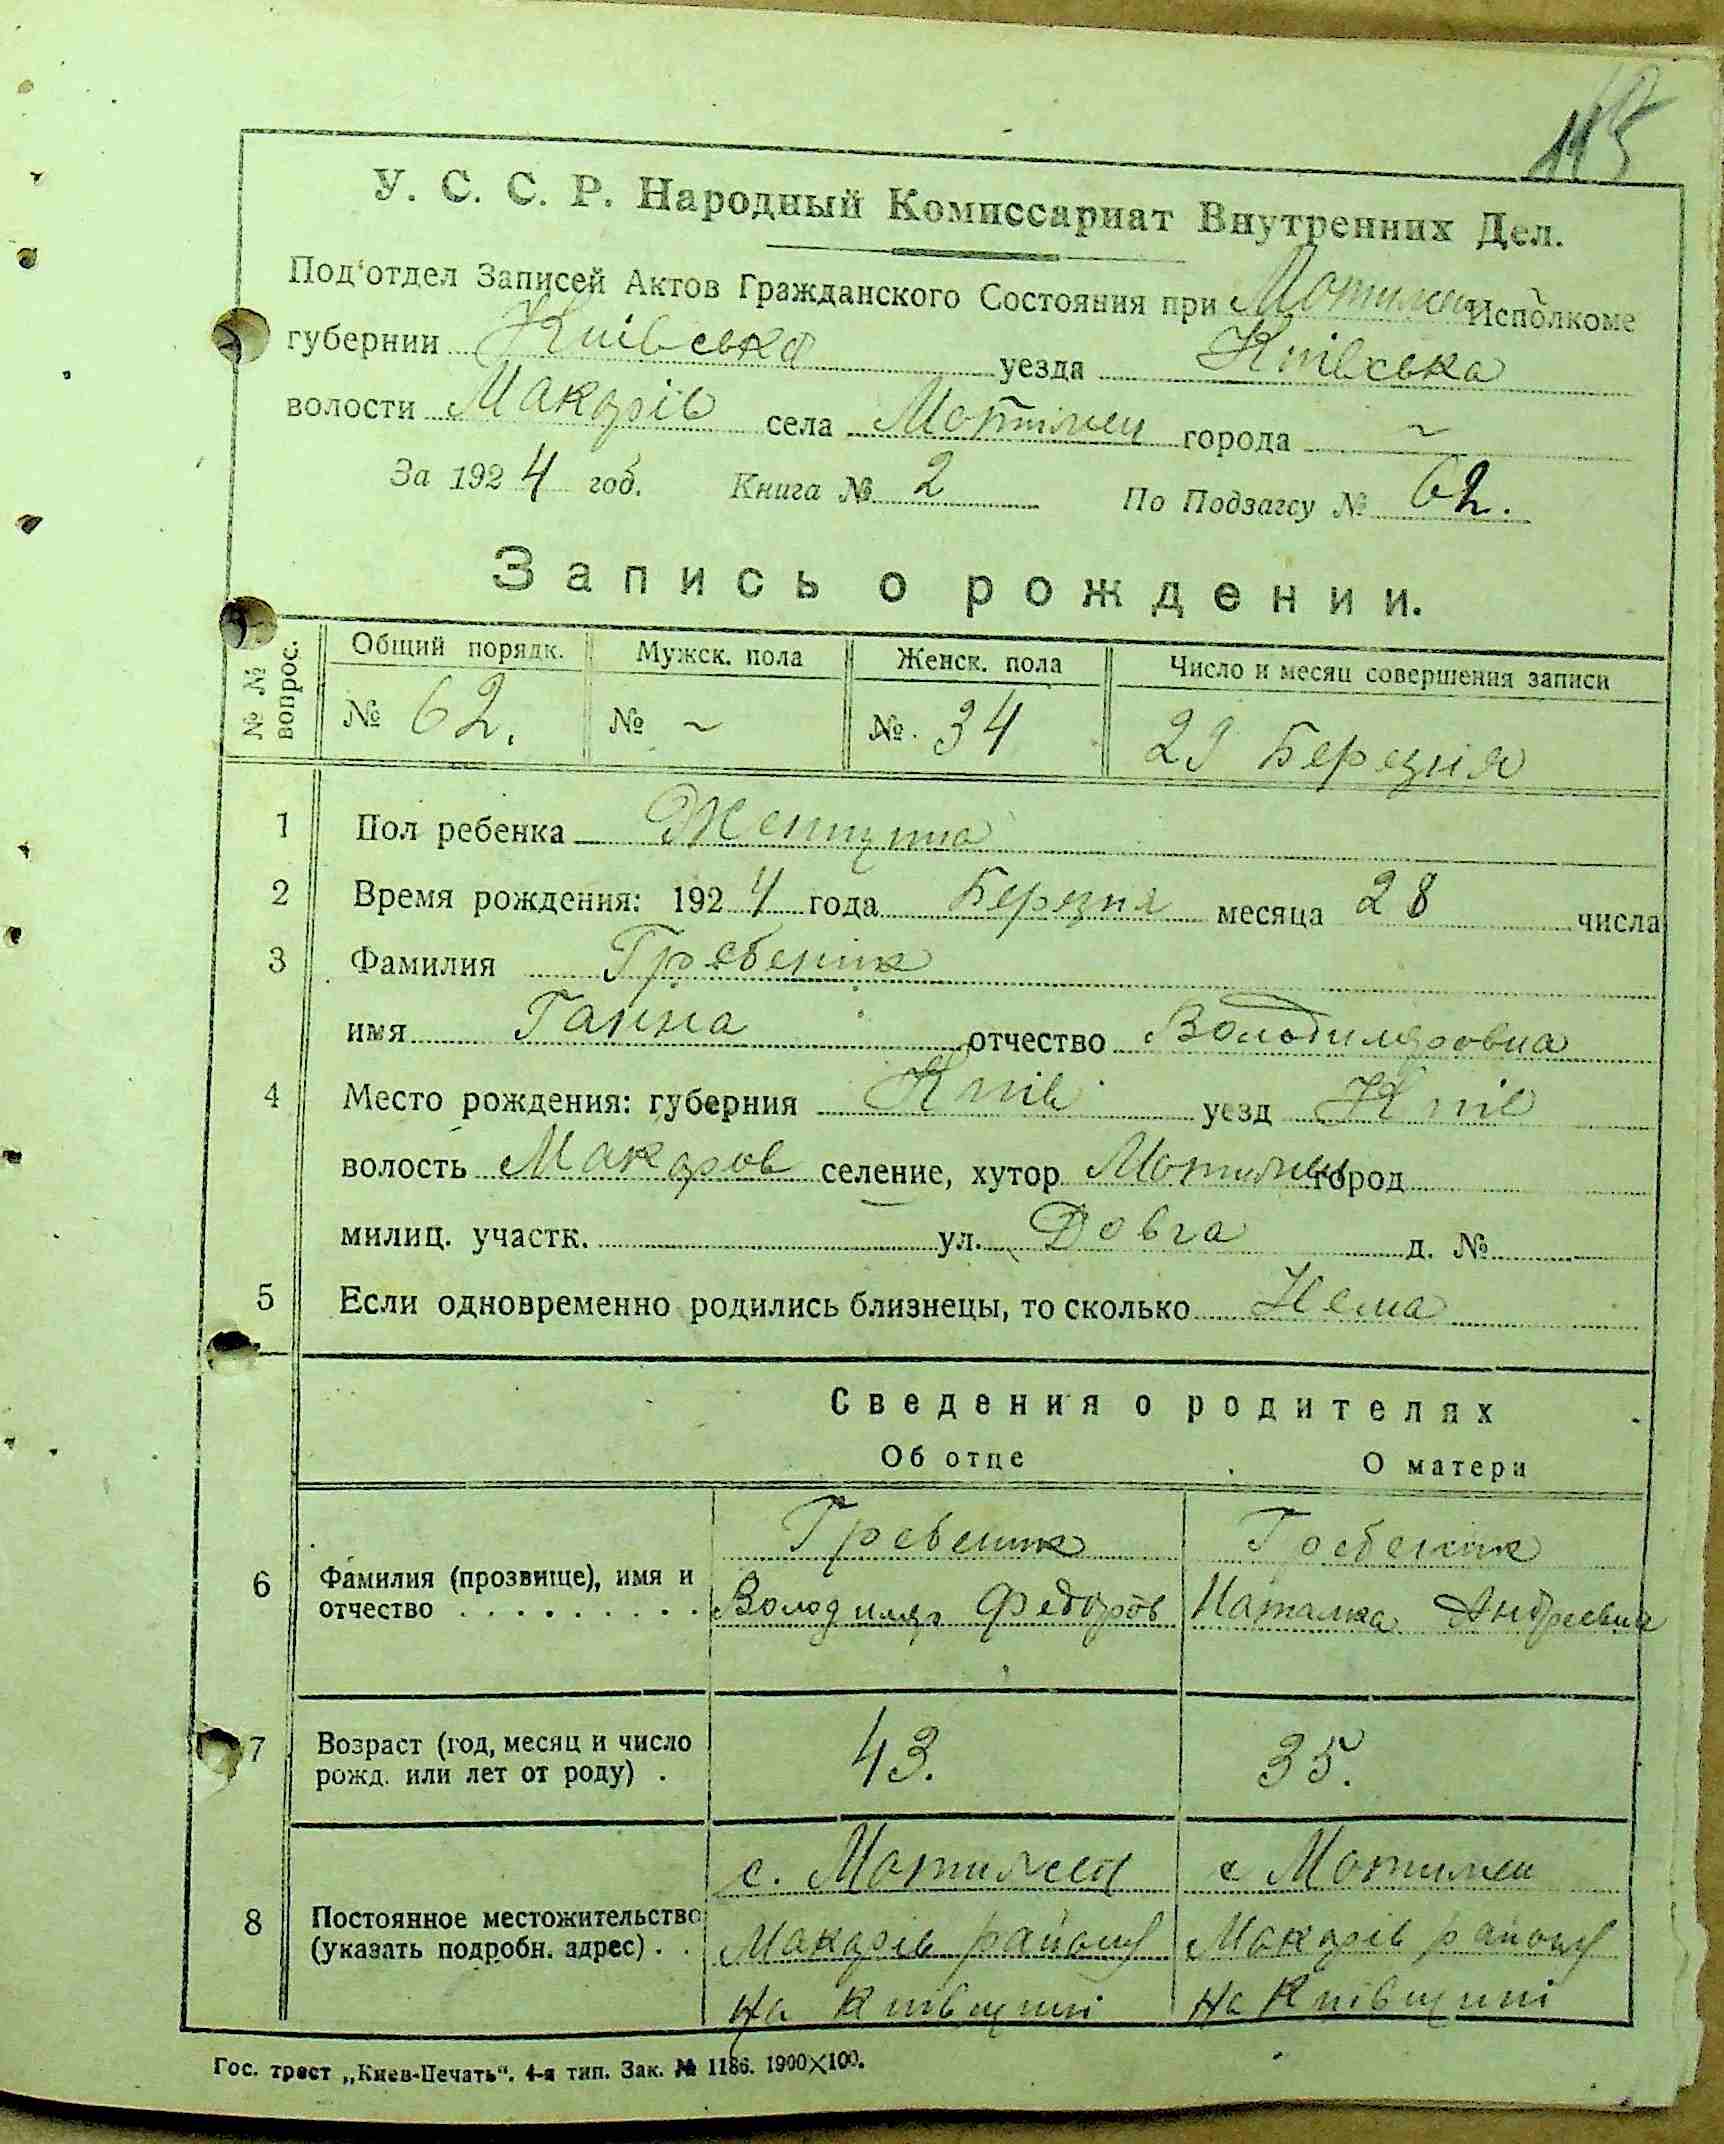 115
У. С. С. Р. Народный Комиссариат Внутренних Дел.
Под'отдел Записей Актов Гражданского Состояния при Мотижин Исполкоме
губернии Київська уезда Київська
волости Макарів села Мотижен города ~
За 1924 год. Книга № 2 По Подзагсу № 62.
Запись о рождении.
№ № вопрос. Общий порядк. Мужск. пола Женск. пола Число и месяц совершения записи
№ 62. № ~ №. 34 29 Березня
1 Пол ребенка Женщина
2 Время рождения: 1924 года Березня месяца 28 числа
3 Фамилия Гребеник
имя Ганна отчество Володимировна
4 Место рождения: губерния Київ уезд Київ
волость Макаров селение, хутор Мотижен город
милиц. участк. ул. Довга д. №
5 Если одновременно родились близнецы, то сколько Нема
Сведения о родителях
Об отце О матери
Гребеник Гребеник
6 Фамилия (прозвище), имя и
отчество . . . . . . . . . . Володимир Федоров Наталка Андреевна
7 Возраст (год, месяц и число
рожд. или лет от роду) . 43. 35.
с. Мотижен с Мотижен
8 Постоянное местожительство
(указать подробн. адрес) . . Макарів району Макарів району
на Київщині на Київщині
Гос. трест „Киев-Печать“. 4-я тип. Зак. № 1186. 1900×100.